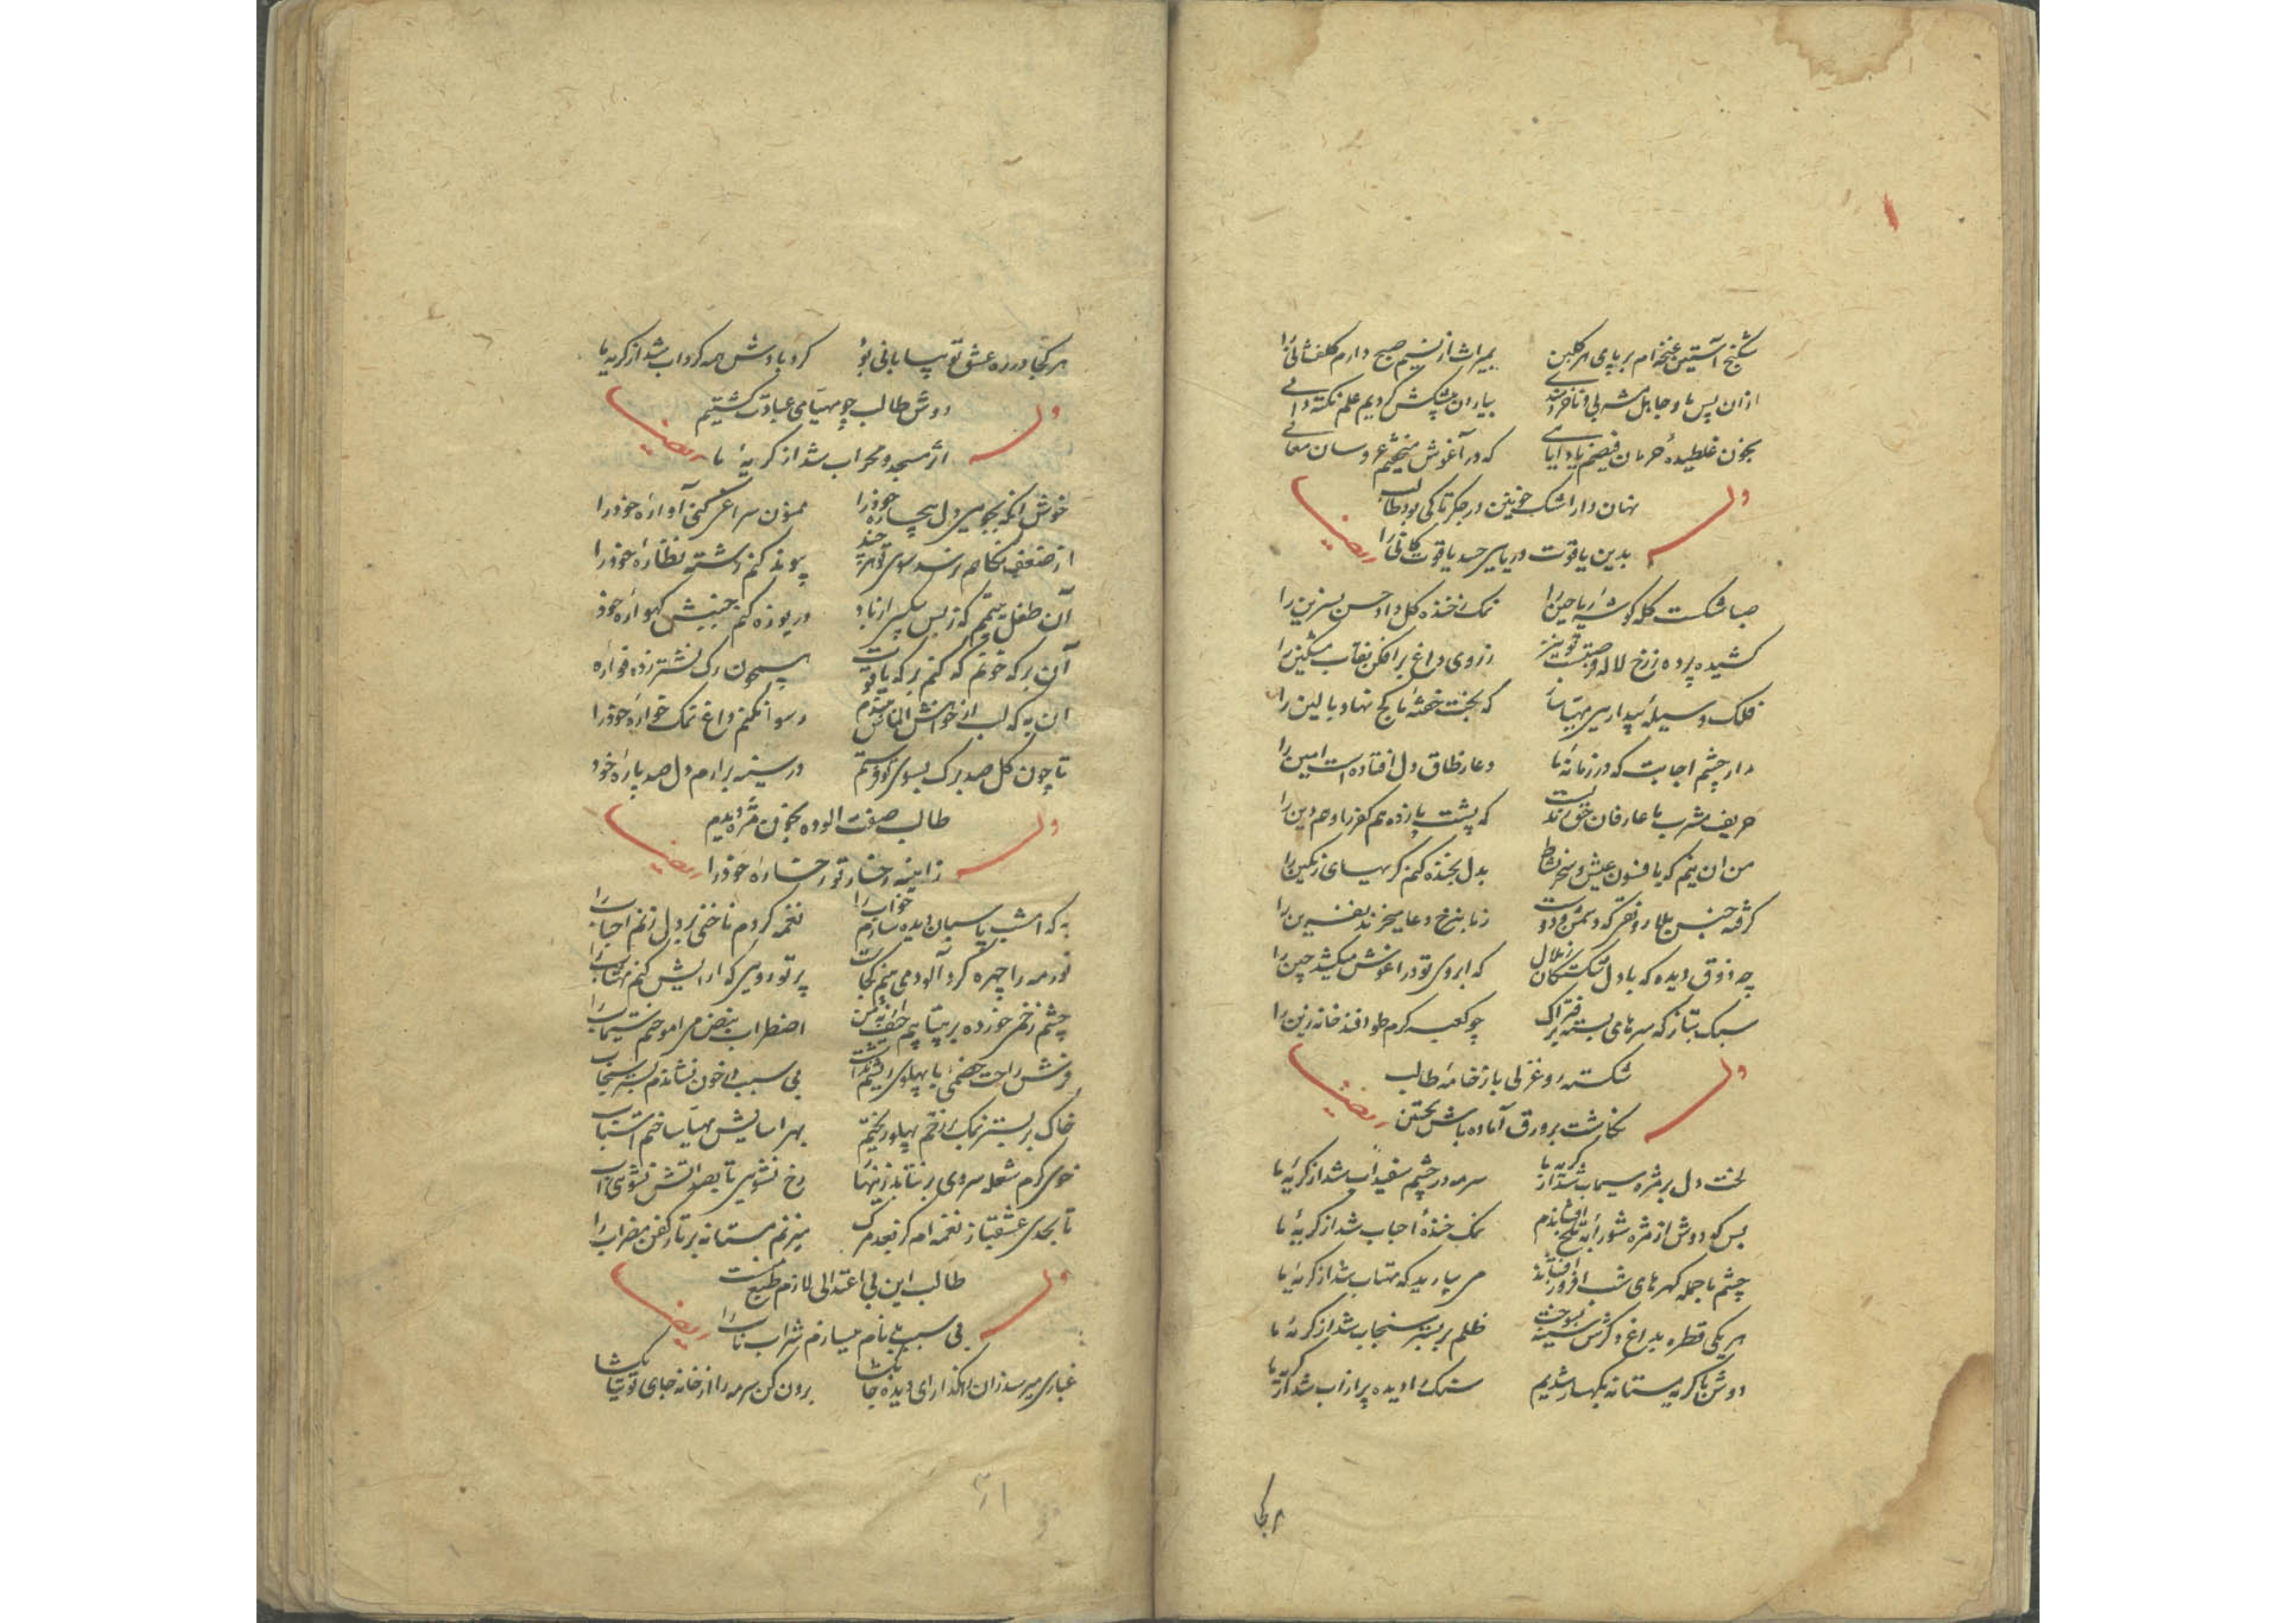 شکنج آستین غنچه ام بر پای هر گلبن بمیراث از نسیم صبح دارم گلفشانی را
ازان پس ما و جاهل مشربی و ناخردمندی بیاران پیشکش کردیم علم نکته دانی
بخون غلطیده حرمان فیضم یاد ایامی که در آغوش میخفتم عروسان معانی
وله
نهان دار اشک خونین در جگر تا کی بود طالب
بدین یاقوت دریایی حسد یاقوت کانی را
ایضا
صبا شکست کله گوشه ریاحین را نمک ز خنده گل داد حسن نسرین را
کشیده پرده ز رخ لاله ز روی داغ برافکن نقاب مشکین را
فلک وسیله بیداریی مهیا ساز که بخت خفته ما کج نهاد بالین را
مدار چشم اجابت که در زمانه ما دعا ز طاق دل افتاده است امین را
حریف مشرب ما عارفان حق نه که پشت پا زده هم کفر را و هم دین را
من آن نیم که بافسون عیش و سحر نشاط بدل بخنده کنم گریهای رنگین را
گرفته جنس بلا رونقی که دشمن و دوست ز ما بنرخ دعا میخرند نفرین را
چه ذوق دیده که با دل شکستگان که ابروی تو در آغوش میکشد چین را
سبک بتاز که سرهای بسته بر فتراک چو کعبه گرم طوافند خانه زین را
وله
شکسته و غزلی باز خامه طالب
نگاشت بر ورق آماده باش تحسین
ایضا
لخت دل بر مژه سیماب شد از گریه ما سرمه در چشم سفیداب شد از گریه ما
بس که دوش از مژه شورابه تلخ افشاندم نمک خنده احباب شد از گریه ما
چشم ما جمله گهرهای شب افروز افشاند می بیارید که مهتاب شد از گریه ما
هر یکی قطره بداغ دگرش سینه بسوخت ظلم بر بستر سنجاب شد از گریه ما
دوش با گریه مستانه بکهسار شدیم سنگ را دیده پر از آب شد از گریه ما
هر کجا
هر کجا در ره عشق تو بیابانی بود گردبادش همه گرداب شد از گریه ما
وله
دوش طالب چو مهیای عبادت گشتیم
اثر مسجد و محراب شد از گریه ما
ایضا
خوش آنکه بجویی دل بیچاره خود را ممنون سراغی کنی آواره خود را
از ضعف نگاهم نرسد سوی تو هر چند پیوند کنم رشته نظاره خود را
آن طفل یتیمم که ز بس بیکسی از باد دریوزه کنم جنبش گهواره خود
آن برکه خونم که کنم برکه یاقوت همچون رگ نشتر زده فواره
آن به که لب از خواهش الماس ببندم رسوا نکنم داغ نمک خواره خود را
تا چون گل صد برگ بسوی تو فرستم در سینه برآرم دل صد پاره خود
وله
طالب صفت آلوده بخون مژه دیدیم
ز آیینه رخسار تو رخساره خود را
ایضا
به که امشب پاسبان دیده سازم خواب را نغمه کردم ناخنی بر دل زنم احباب را
نور مه را چهره گردآلود می بینم کجاست پرتو رویی که آرایش کنم مهتاب را
چشم زخمی خورده بر بیتابیم اضطراب نبض می آموختم سیماب را
فرش راحت خصمی با پهلوی ریشم نداشت بی سبب در خون نشاندم بستر سنجاب
خاک بر بستر نمک بر زخم پهلو ریختم بهر آسایش مهیا ساختم اسباب
خوی گرم شعله رویی بر نتابد زینها رخ نشویی تا بصد آتش نشویی آب
تا بجدی عشقباز نغمه ام کز بعد مرگ میزنم مستانه بر تار کفن مضراب را
وله
طالب این بی اعتدالی لازم طبع منست
بی سبب بدنام میسازم شراب ناب را
ایضا
غباری میرسد زان رهگذار ای دیده جا بگشا برون کن سرمه را از خانه جای توتیا بگشا